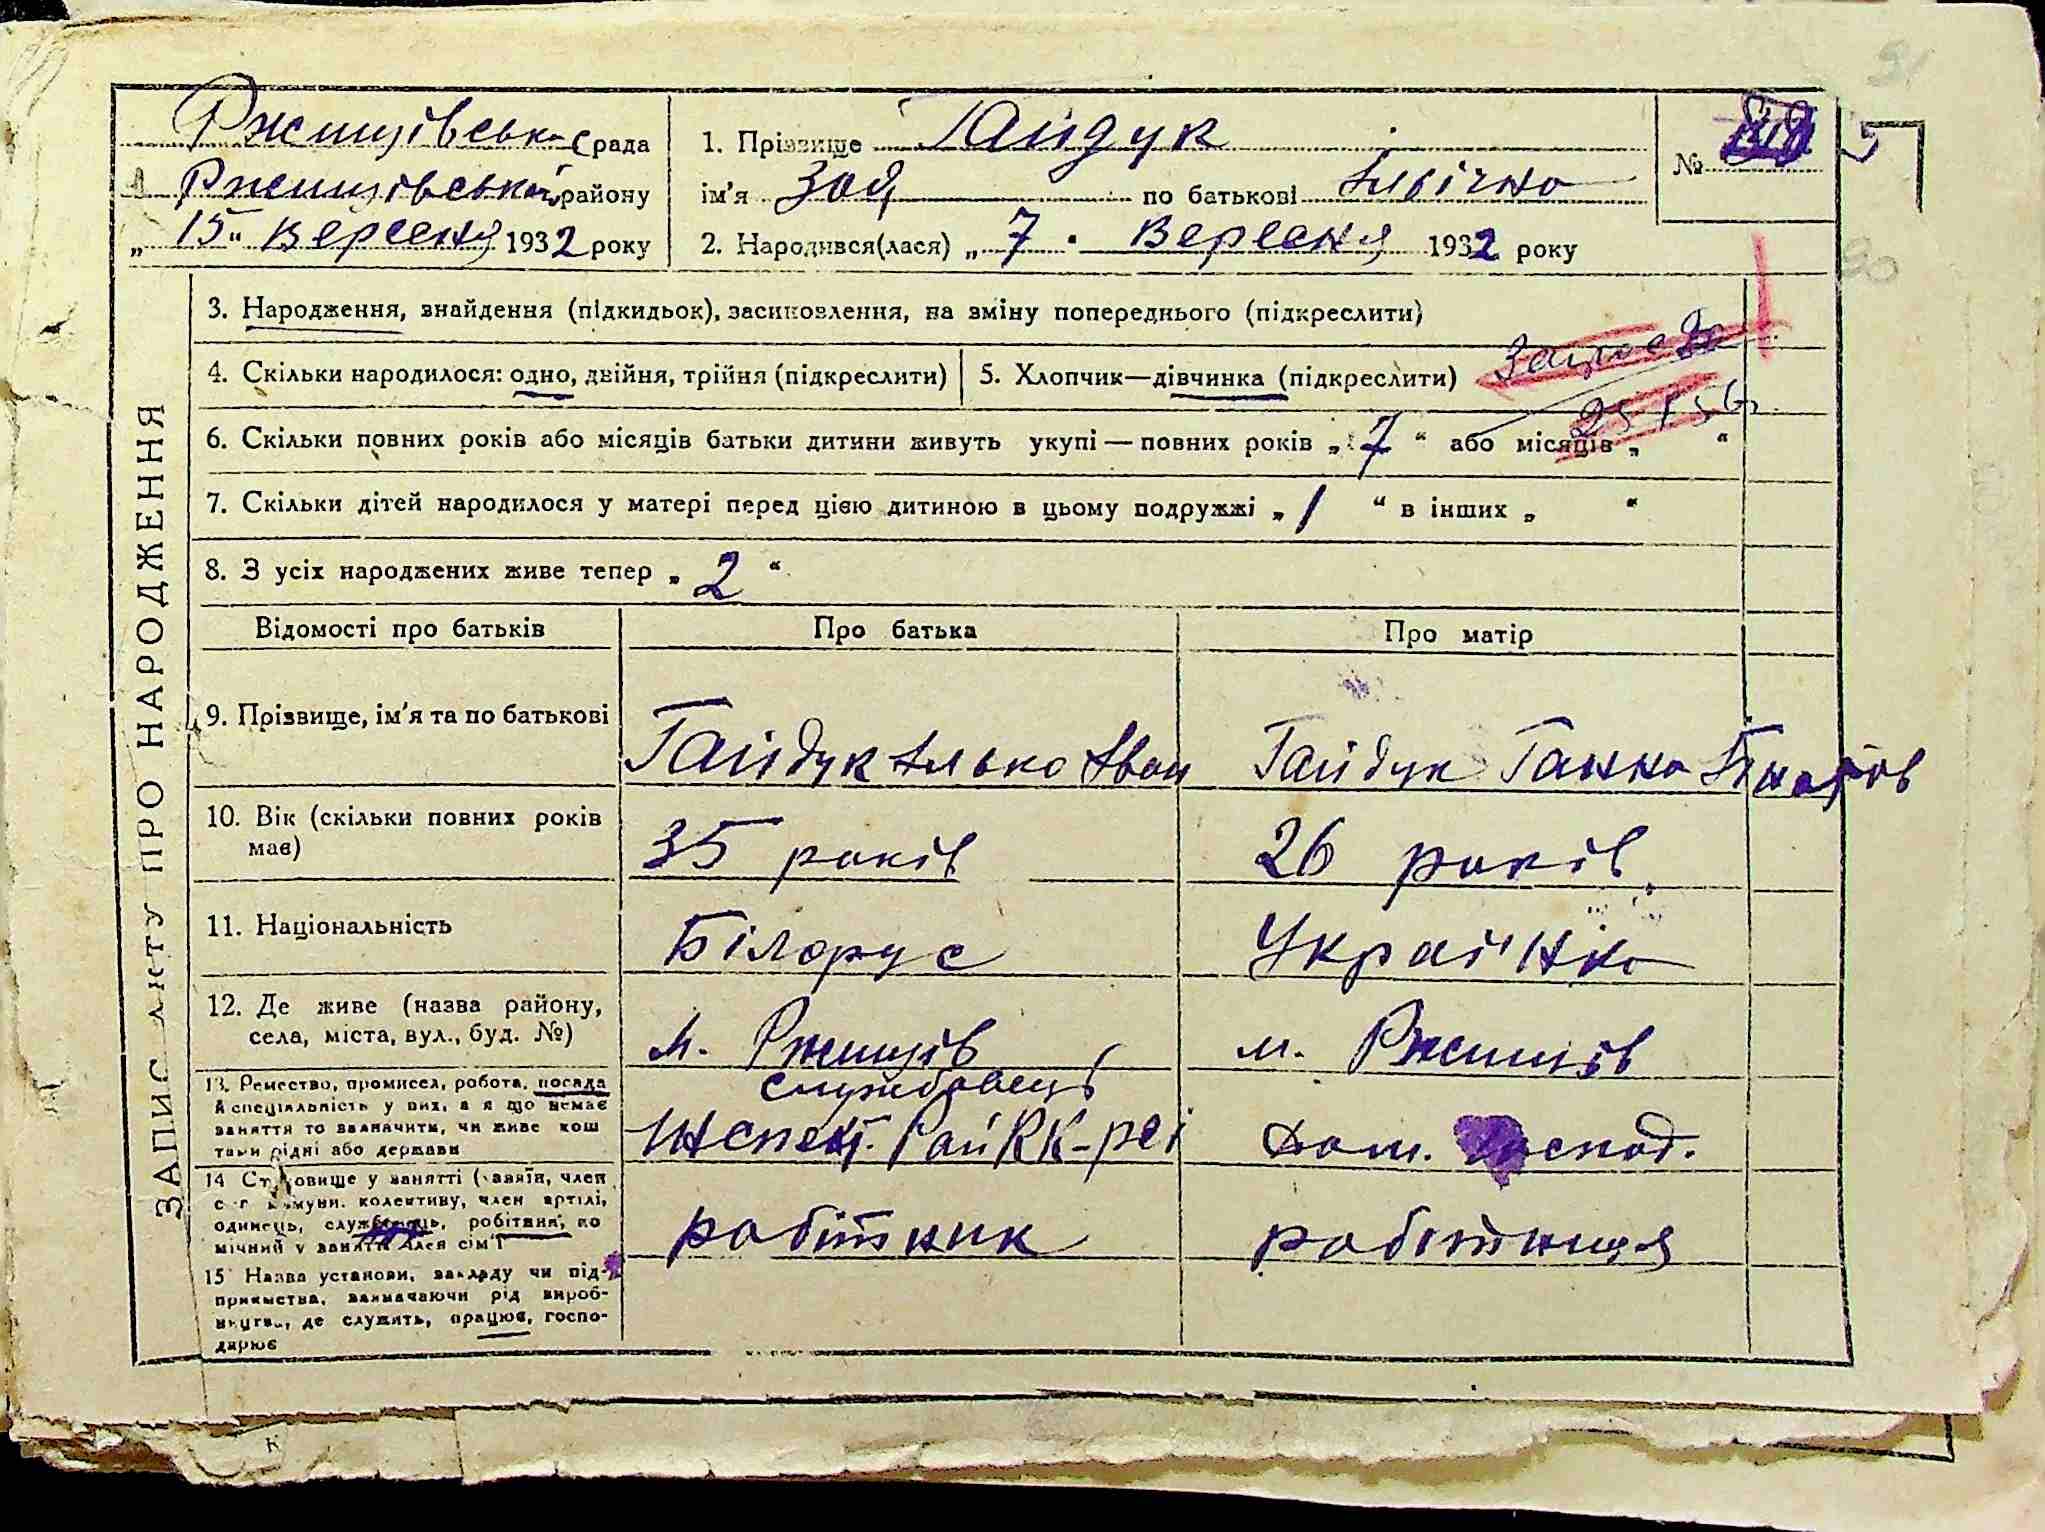 Ржищівськ срада
Ржищівський району
„ 15 " Вересня 1932 року
1. Прізвище Гайдук
ім'я Зоя по батькові Ільічно
2. Народився(лася) „ 7 " Вересня 1932 року
№
ЗАПИС АКТУ ПРО НАРОДЖЕННЯ
3. Народження, знайдення (підкидьок), засиновлення, на зміну попереднього (підкреслити)
4. Скільки народилося: одно, двійня, трійня (підкреслити) 5. Хлопчик—дівчинка (підкреслити)
6. Скільки повних років або місяців батьки дитини живуть укупі — повних років „ 7 “ або місяців „ “
7. Скільки дітей народилося у матері перед цією дитиною в цьому подружжі „ 1 “ в інших „ “
8. З усіх народжених живе тепер „ 2 “
Відомості про батьків Про батька Про матір
9. Прізвище, ім'я та по батькові
Гайдук Ілько Іван Гайдук Ганна
10. Вік (скільки повних років
має)
35 років 26 років
11. Національність
Білорус Українка
12. Де живе (назва району,
села, міста, вул., буд. №)
м. Ржищів м. Ржищів
13. Ремество, промисел, робота, посада
й спеціяльність у них, а я що немає
заняття то зазначити, чи живе кош
тами рідні або держави
службовець
Инспект. РайКК-рсі Дом. господ.
14 Становище у занятті (хазяїн, член
с-г комуни, колективу, член артілі,
одинець, службовець, робітник, по
мічний у занятті член сім'ї
робітник робітниця
15 Назва установи, закладу чи під-
приємства, зазначаючи рід вироб-
ництва, де служить, працює, госпо-
дарює